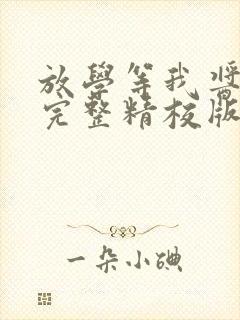 放學等我 醬
完整精校版
一朵小碘